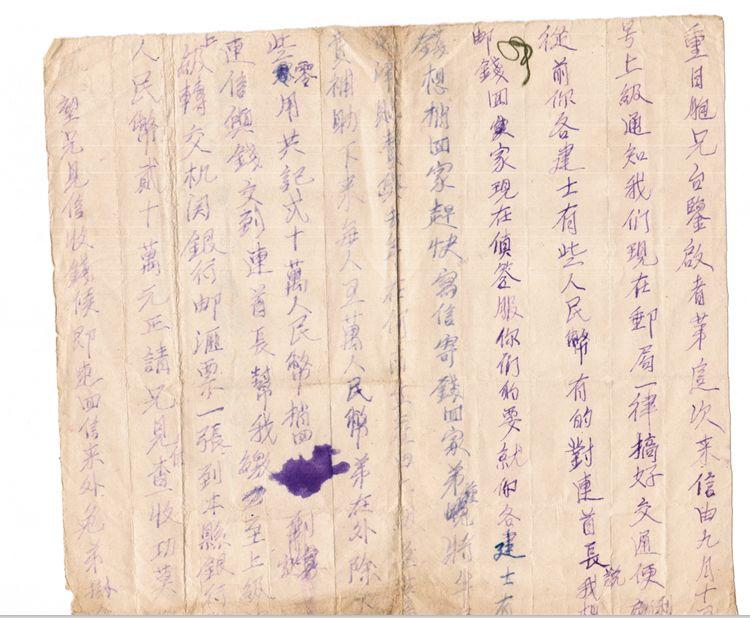 重日胞兄台鑒啟者茅宣次来信由九月十
号上級通知我們現在郵局一律搞好交通便
從前你各建士有些人民幣有的對連首長說我想
邮錢回家現在答服你們的要就你各建士有
錢想梢回家趕快寫信寄錢回家弟將
費補助下来每人五萬人民幣弟在外除
些零用共記弍十萬人民幣梢回
連信與錢交到連首長幫我繳交至上級
上級轉交机関銀行邮滙票一張到本縣銀行
人民幣貳十萬元正請兄見信查收功莫
望兄見信收錢候即速回信来外免弟掛